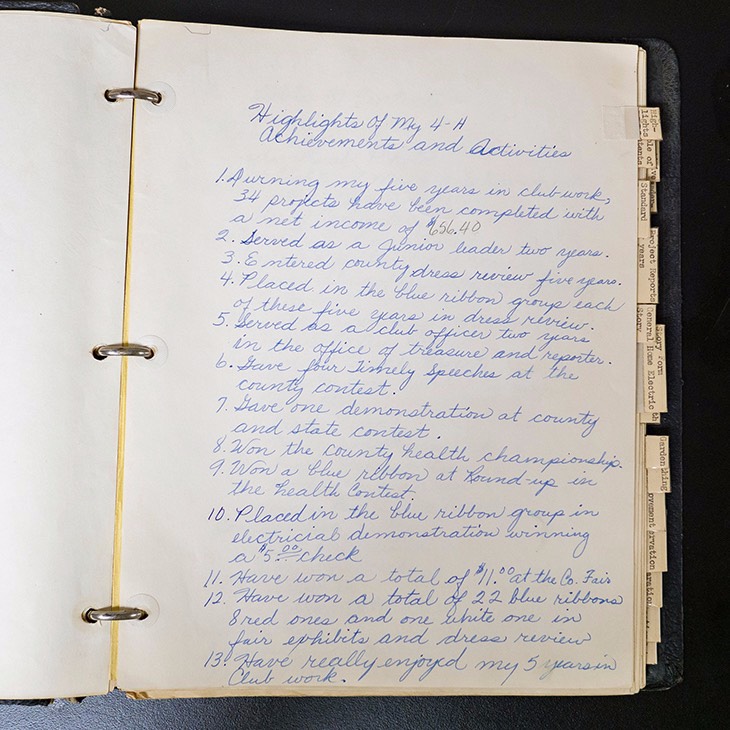 Highlights Of My 4-H
Achievements and Activities
1. Durning my five years in club work,
34 projects have been completed with
a net income of $656.40
2. Served as a Junior leader two years.
3. Entered county dress review five years.
4. Placed in the blue ribbon group each
of these five years in dress review.
5. Served as a club officer two years
in the office of treasure and reporter.
6. Gave four Timely Speeches at the
county contest.
7. Gave one demonstration at county
and state contest.
8. Won the county health championship.
9. Won a blue ribbon at Round-up in
the Health Contest.
10. Placed in the blue ribbon group in
electricial demonstration winning
a $5.00 check
11. Have won a total of $11.00 at the Co. Fair
12. Have won a total of 22 blue ribbons
8 red ones and one white one in
fair exhibits and dress review
13. Have really enjoyed my 5 years in
Club work.
High-
lights
Standard
Project Reports
years
Story Form
General Home Electric
Story
Garden